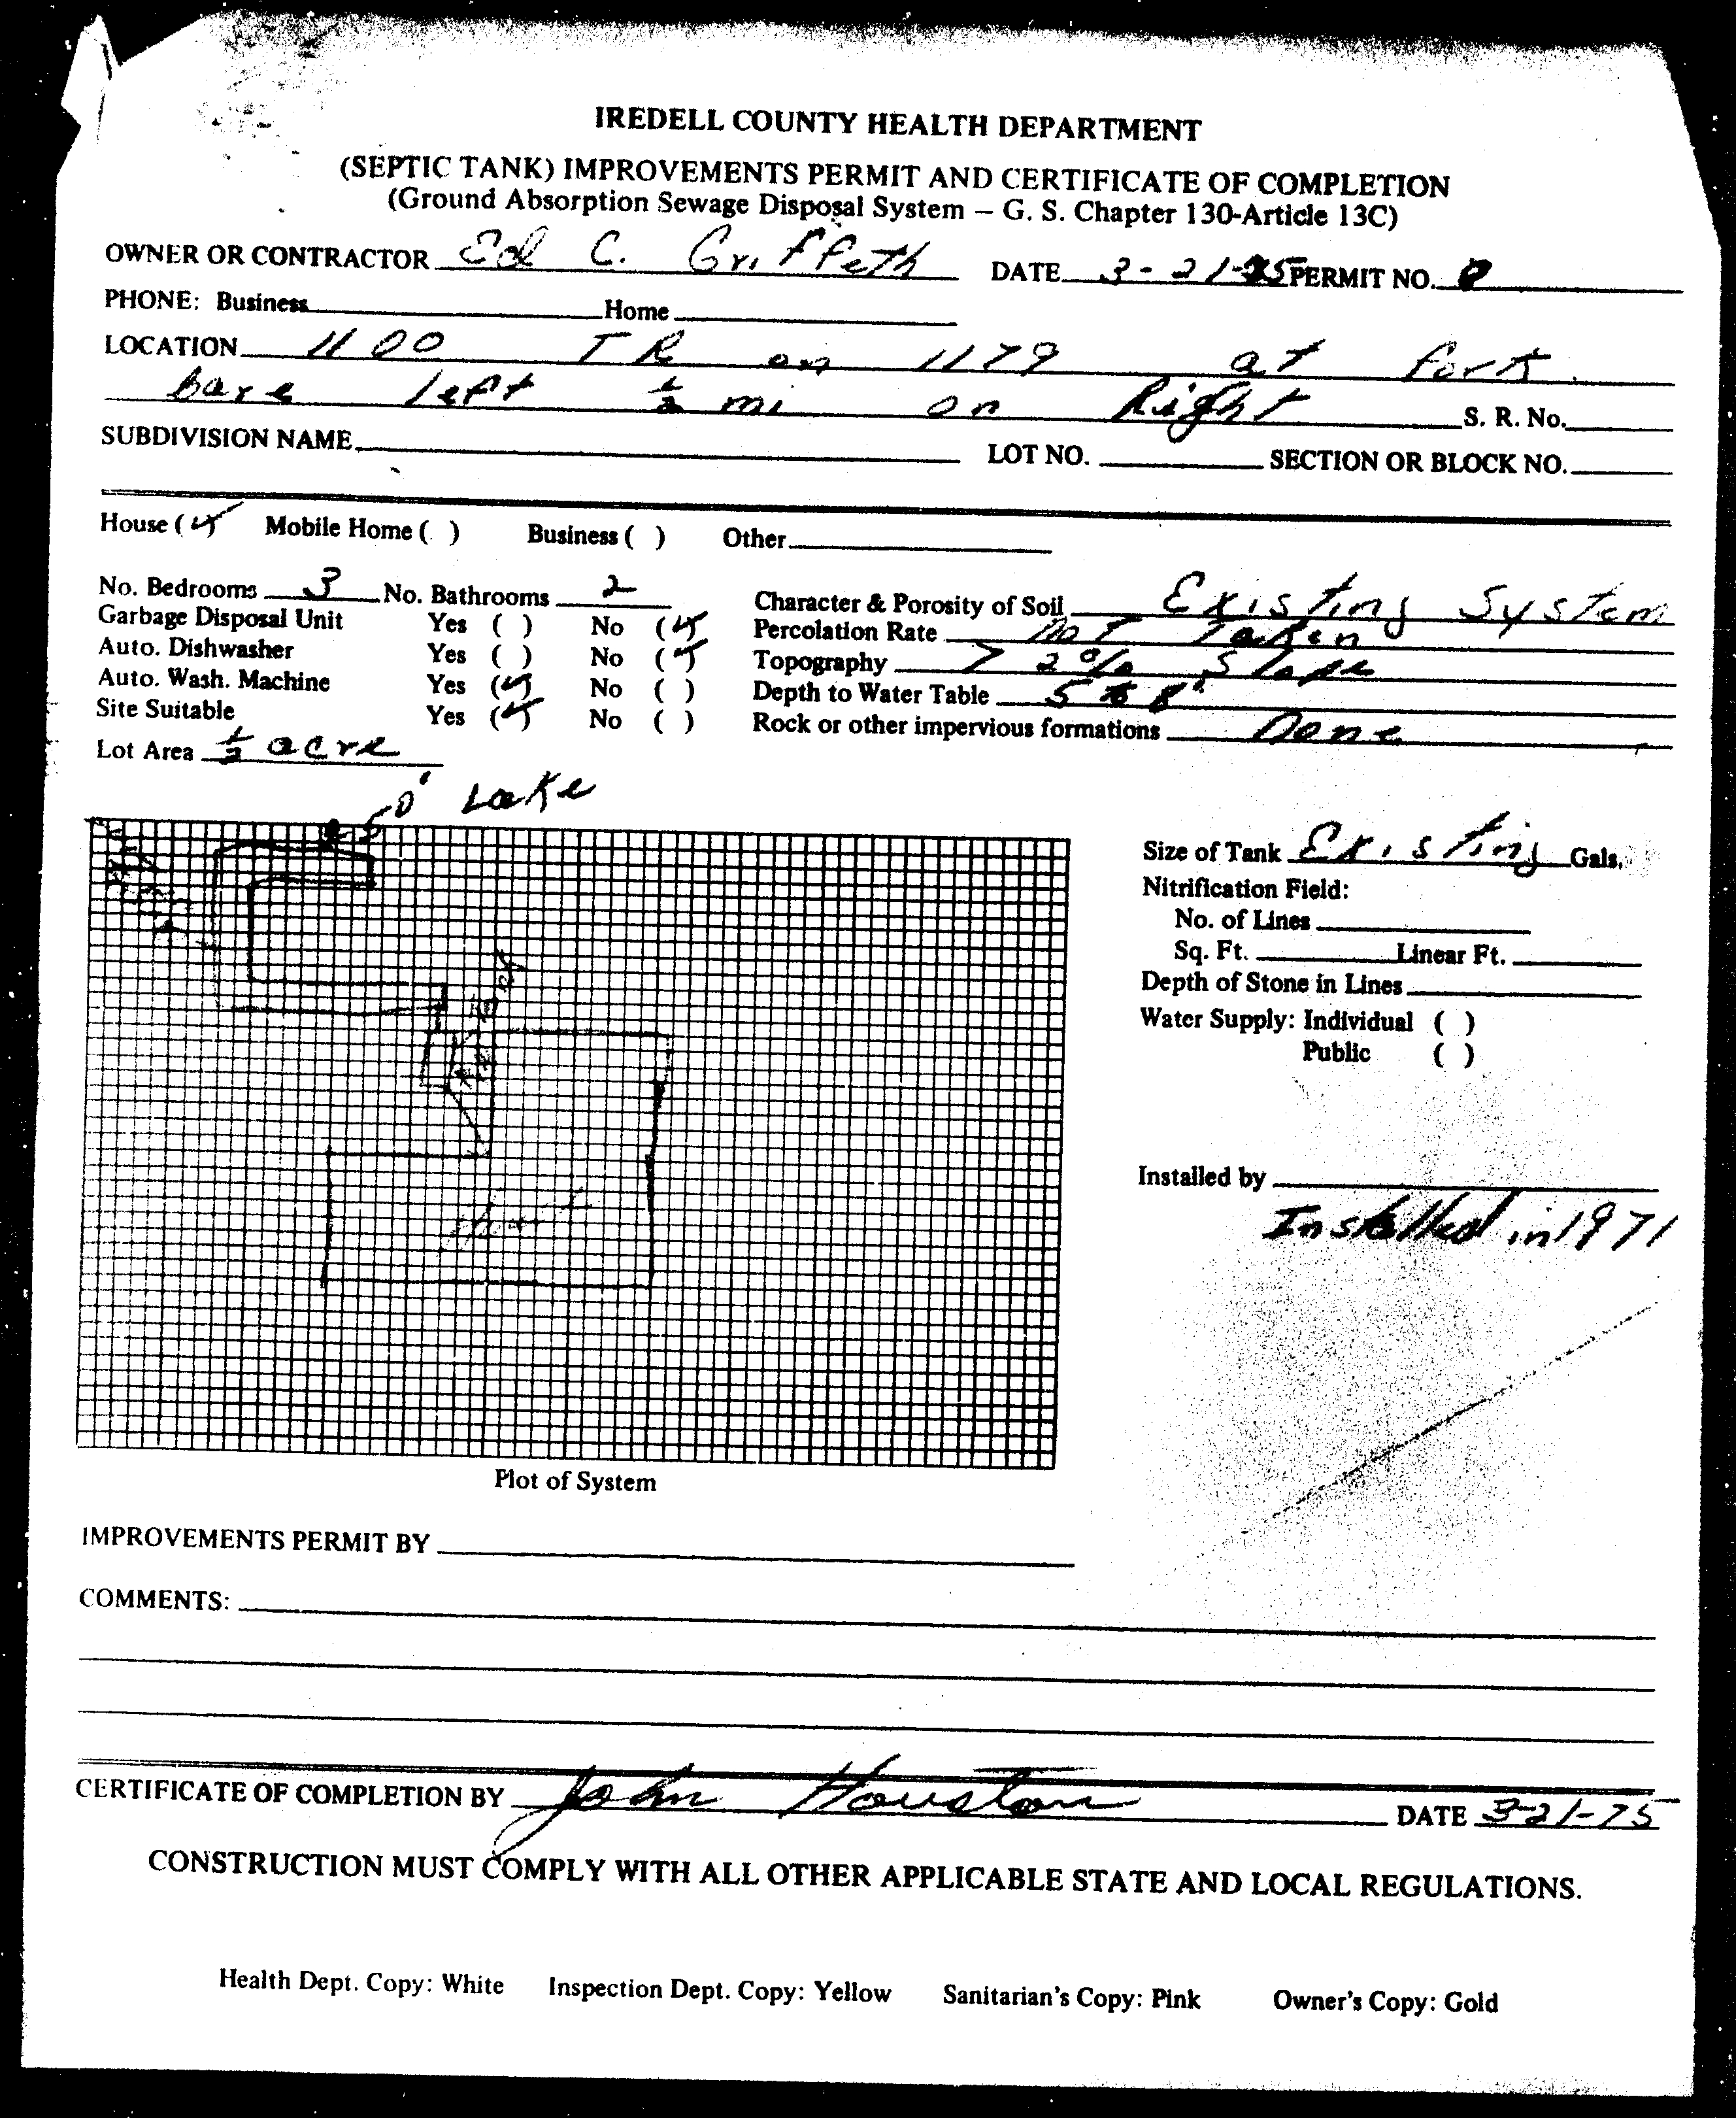 IREDELL COUNTY HEALTH DEPARTMENT
(SEPTIC TANK) IMPROVEMENTS PERMIT AND CERTIFICATE OF COMPLETION
(Ground Absorption Sewage Disposal System – G. S. Chapter 130-Article 13C)
OWNER OR CONTRACTOR Ed C. Griffeth DATE 3-21-75 PERMIT NO.
PHONE: Business Home
LOCATION 1100 TR on 1179 at fork
bare left ½ mi on Right S. R. No.
SUBDIVISION NAME LOT NO. SECTION OR BLOCK NO.
House (✓) Mobile Home ( ) Business ( ) Other
No. Bedrooms 3 No. Bathrooms 2 Character & Porosity of Soil Existing System
Garbage Disposal Unit Yes ( ) No (✓) Percolation Rate not Taken
Auto. Dishwasher Yes ( ) No (✓) Topography > 2% Slope
Auto. Wash. Machine Yes (✓) No ( ) Depth to Water Table 5 to 8'
Site Suitable Yes (✓) No ( ) Rock or other impervious formations None
Lot Area ½ acre
50' Lake
Size of Tank Existing Gals.
Nitrification Field:
No. of Lines
Sq. Ft. Linear Ft.
Depth of Stone in Lines
Water Supply: Individual ( )
Public ( )
Installed by
Installed in 1971
Plot of System
IMPROVEMENTS PERMIT BY
COMMENTS:
CERTIFICATE OF COMPLETION BY John Houston DATE 3-21-75
CONSTRUCTION MUST COMPLY WITH ALL OTHER APPLICABLE STATE AND LOCAL REGULATIONS.
Health Dept. Copy: White Inspection Dept. Copy: Yellow Sanitarian's Copy: Pink Owner's Copy: Gold